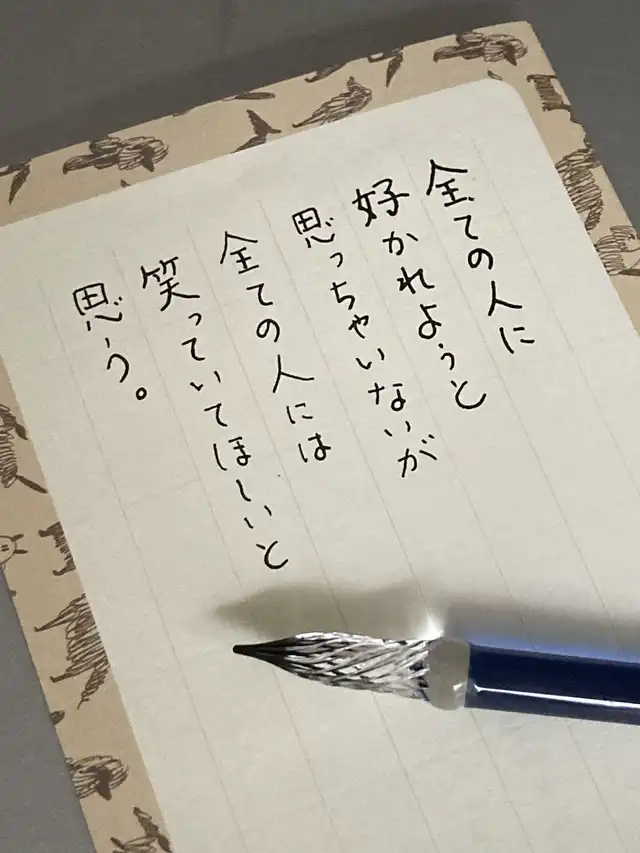 全ての人に
好かれようと
思っちゃいないが
全ての人には
笑っていてほしいと
思う。